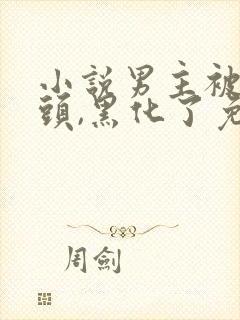 小說男主被
頭,黑化了免
周劍